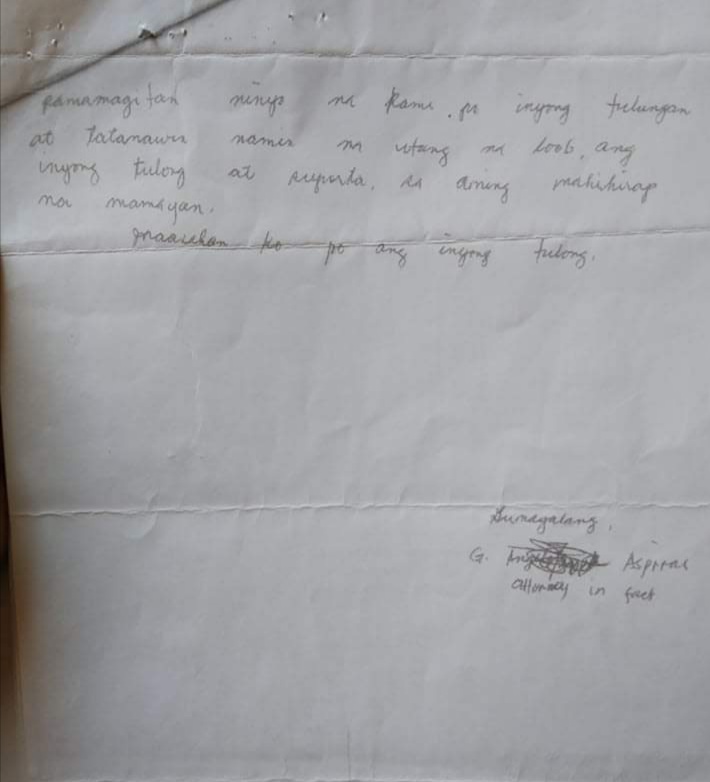 pamamagitan ninyo na kami. po inyong tulungan
at tatanawin namin na utang na loob, ang
inyong tulong at suporta, sa aming mahihirap
na mamayan.
maasahan ko po ang inyong tulong.
Gumagalang,
G. Aspiras
attorney in fact